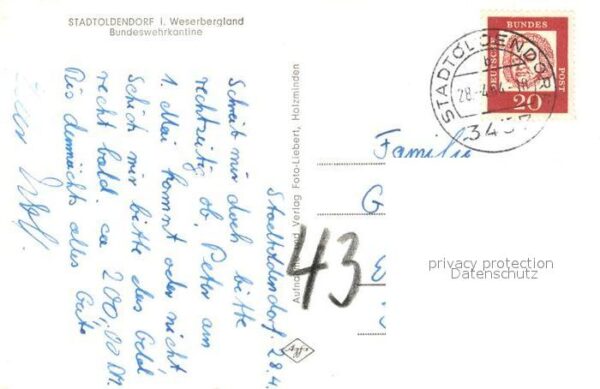 STADTOLDENDORF i. Weserbergland
Bundeswehrkantine
Stadtoldendorf, 28.4.
Schreib mir doch bitte
rechtzeitig ob Peter am
1. Mai kommt oder nicht
Schick mir bitte das Geld
recht bald. ca 200,00 DM.
Bis demnächst alles Gute
Aufnahme und Verlag Foto-Liebert, Holzminden
DEUTSCHE BUNDES POST
20
STADTOLDENDORF
28.-4.
3457
Familie
G
43
privacy protection
Datenschutz